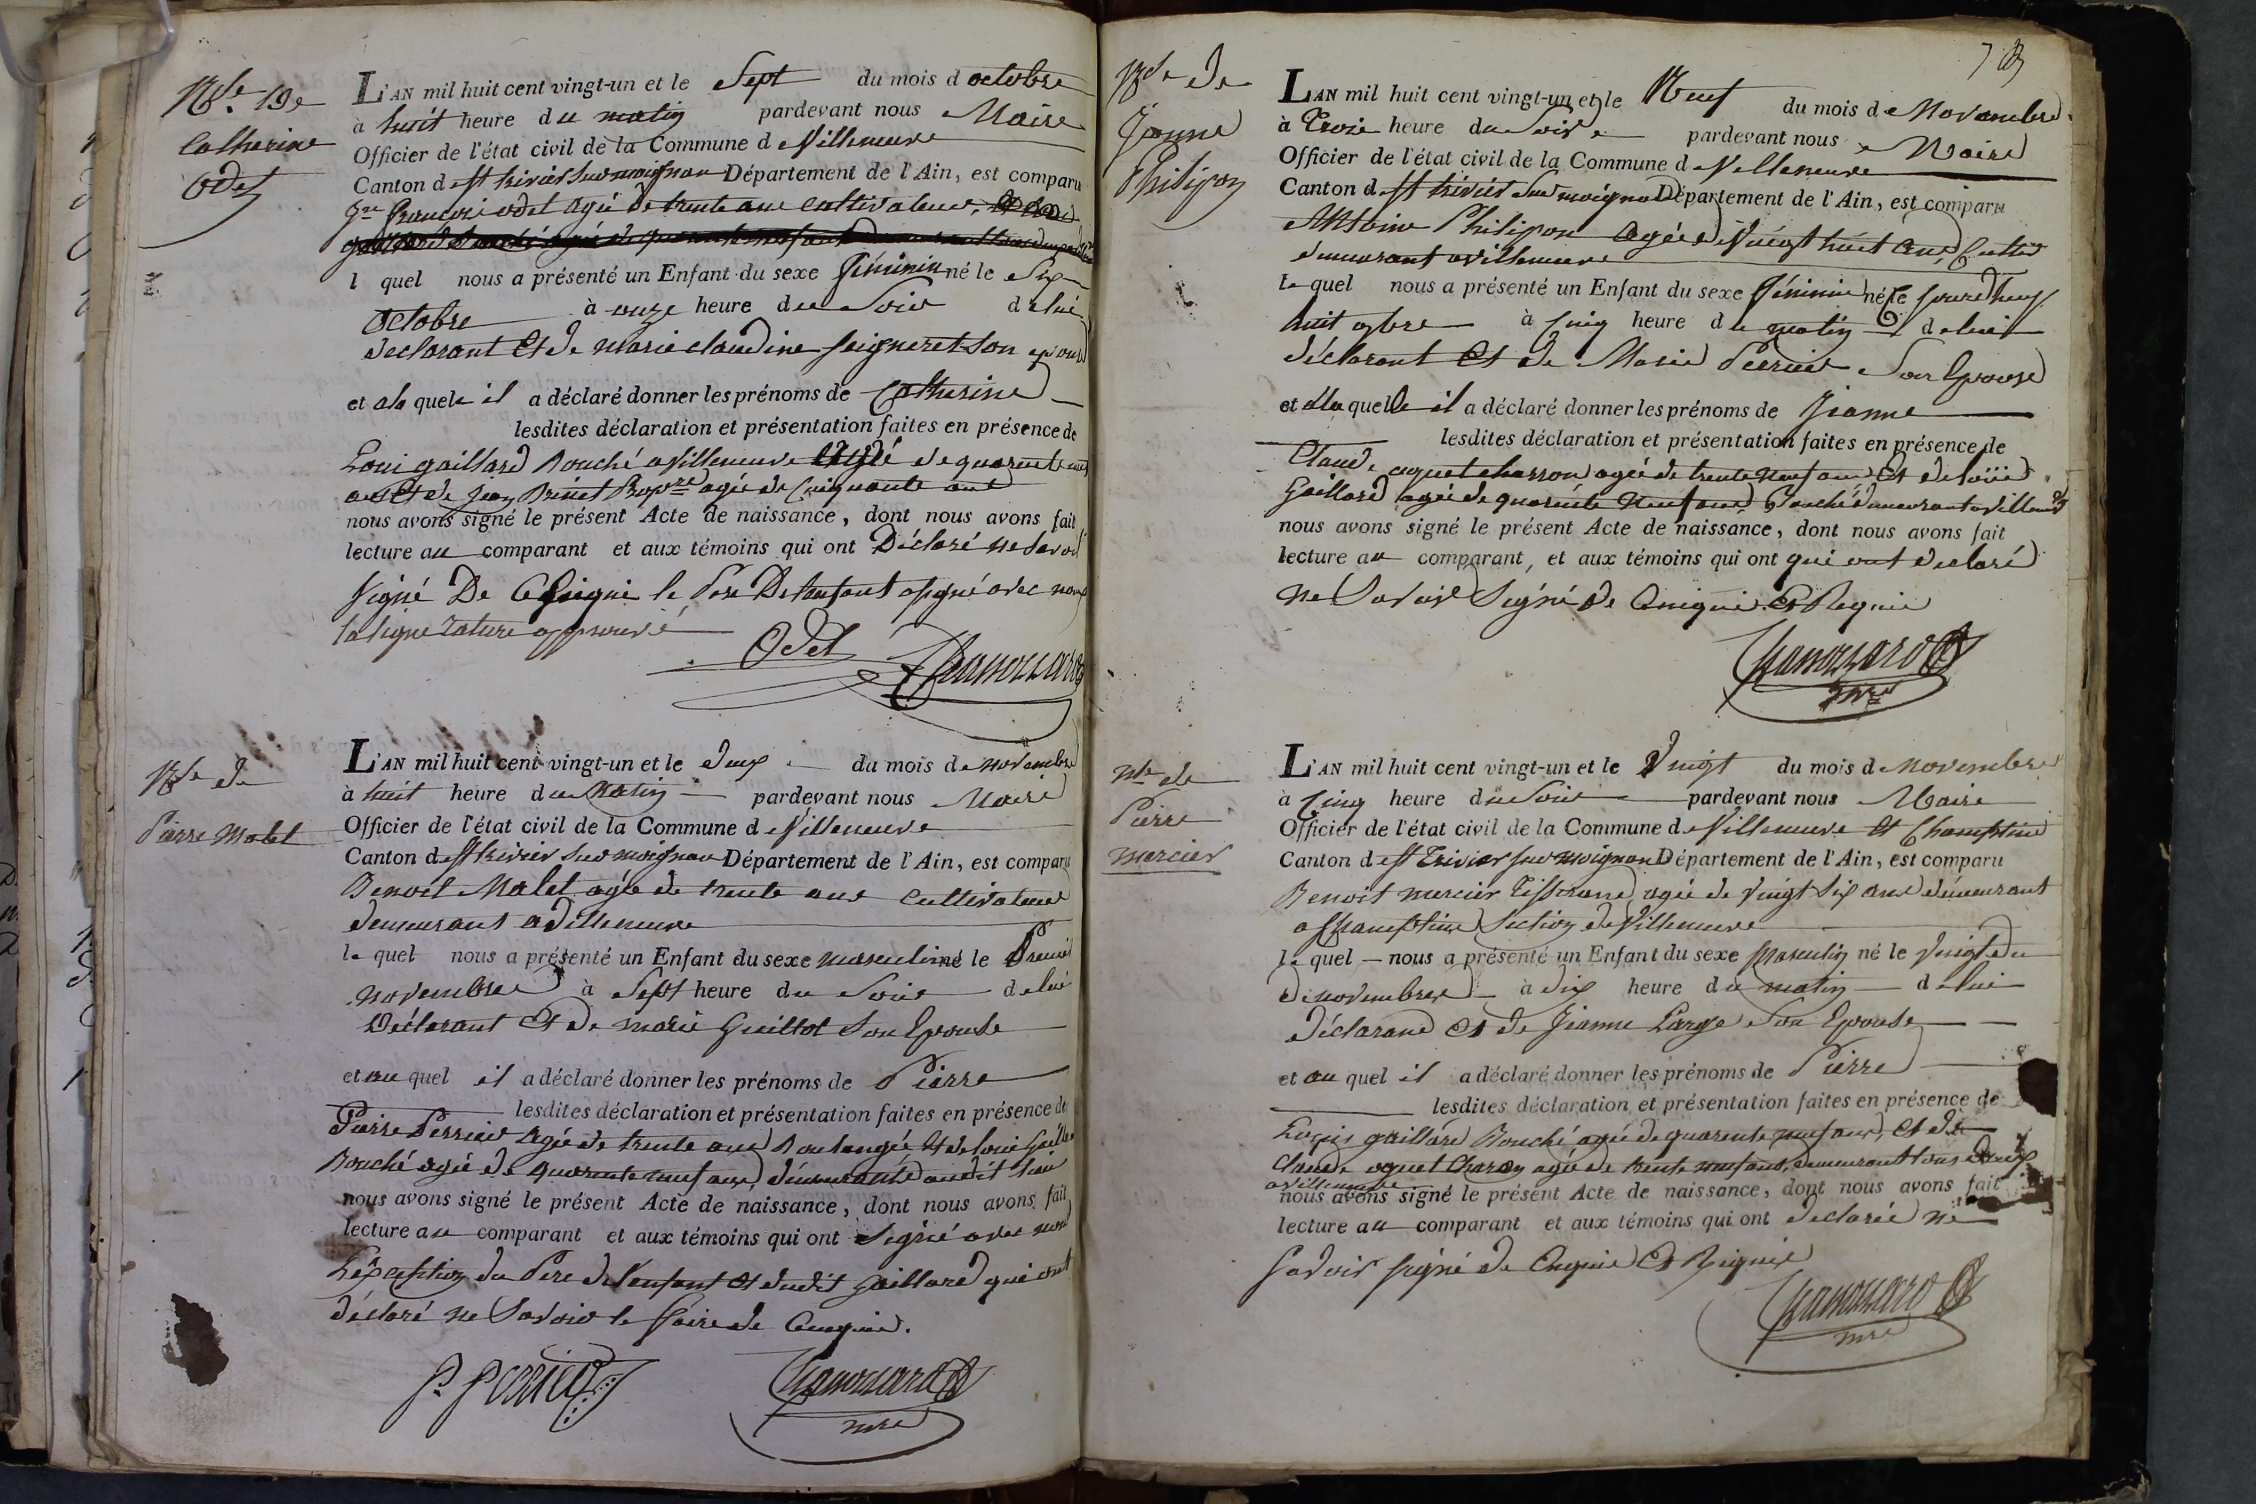 Nce De
Catherine
Odet
L'AN mil huit cent vingt-un et le Sept du mois d octobre
à huit heure du matin pardevant nous Maire
Officier de l'état civil de la Commune de Villeneuve
Canton de St trivier sur moignan Département de l'Ain, est comparu
François odet agé de trente ans cultivateur,
l quel nous a présenté un Enfant du sexe féminin né le Six
Octobre à onze heure du Soir de lui
declarant Et de marie claudine seigneret son epouse
et a la quele il a déclaré donner les prénoms de Catherine
lesdites déclaration et présentation faites en présence de
Loui gaillard Bouché a villeneuve Agé de quarente neuf
ans et de jean Brinet Propre agé de Cinquante ans
nous avons signé le présent Acte de naissance, dont nous avons fait
lecture au comparant et aux témoins qui ont Déclaré ne Savoir
signé De Ce Enqui le Pere De l'enfant a signé avec nous
la ligne rature approuvé
Odet
Chanouard
Nce de
Pierre Malet
L'AN mil huit cent vingt-un et le deux du mois de novembre
à huit heure du Matin pardevant nous Maire
Officier de l'état civil de la Commune de Villeneuve
Canton de St trivier sur moignan Département de l'Ain, est comparu
Benoit Malet agé de trente ans cultivateur
demeurant a villeneuve
le quel nous a présenté un Enfant du sexe masculin né le Premier
novembre à Sept heure du Soir de lui
Déclarant Et de marie Guillot Son Epouse
et au quel il a déclaré donner les prénoms de Pierre
lesdites déclaration et présentation faites en présence de
Pierre Perrier Agé de trente ans Boulangé Et de loui Gaillard
Bouché agé de quarente neuf ans, démeurants audit lieu
nous avons signé le présent Acte de naissance, dont nous avons fait
lecture au comparant et aux témoins qui ont Signé avec nous
L'exception du Pere de l'enfant et dudit gaillard qui ont
déclaré ne Savoir le faire de Cenquie.
P. Perrier
Chanouard
mre
Nce de
Jeanne
Philipon
L'AN mil huit cent vingt-un et le Neuf du mois de Novembre
à Trois heure du Soir pardevant nous Maire
Officier de l'état civil de la Commune de Villeneuve
Canton de St trivier sur moignan Département de l'Ain, est comparu
Antoine Philipon agé de Vingt huit ans Culteur
demeurant a villeneuve
le quel nous a présenté un Enfant du sexe féminin né le
huit 9bre à Cinq heure du matin de lui
déclarant Et de Marie Perrier Son Epouse
et a la quelle il a déclaré donner les prénoms de Jeanne
lesdites déclaration et présentation faites en présence de
Claude oguet charron agé de trente neuf ans Et de loüis
Gaillard agé de quarente Neuf ans, Bouché demeurant a villeneuve
nous avons signé le présent Acte de naissance, dont nous avons fait
lecture au comparant, et aux témoins qui ont qui ont declaré
ne Savoir Signé de Enquie Et Requie
Chanouard
mre
Nce de
Pierre
mercier
L'AN mil huit cent vingt-un et le Vingt du mois de Novembre
à Cinq heure du Soir pardevant nous Maire
Officier de l'état civil de la Commune de Villeneuve Et Chamteins
Canton de St Trivier sur moignan Département de l'Ain, est comparu
Benoit mercier Tisserand agé de Vingt Six ans démeurant
a Chamteins Section de Villeneuve
le quel nous a présenté un Enfant du sexe Masculin né le Vingt du
de novembre à dix heure du matin de lui
déclarant et de Jeanne Large Son Epouse
et au quel il a déclaré donner les prénoms de Pierre
lesdites déclaration et présentation faites en présence de
Louis gaillard Bouché agé de quarente neuf ans, et de
Claude oguet Charon agé de trente neuf ans, demeurant tous deux
a villeneuve
nous avons signé le présent Acte de naissance, dont nous avons fait
lecture au comparant et aux témoins qui ont declarée ne
Savoir signé de Enquie Et Requie
Chanouard
mre